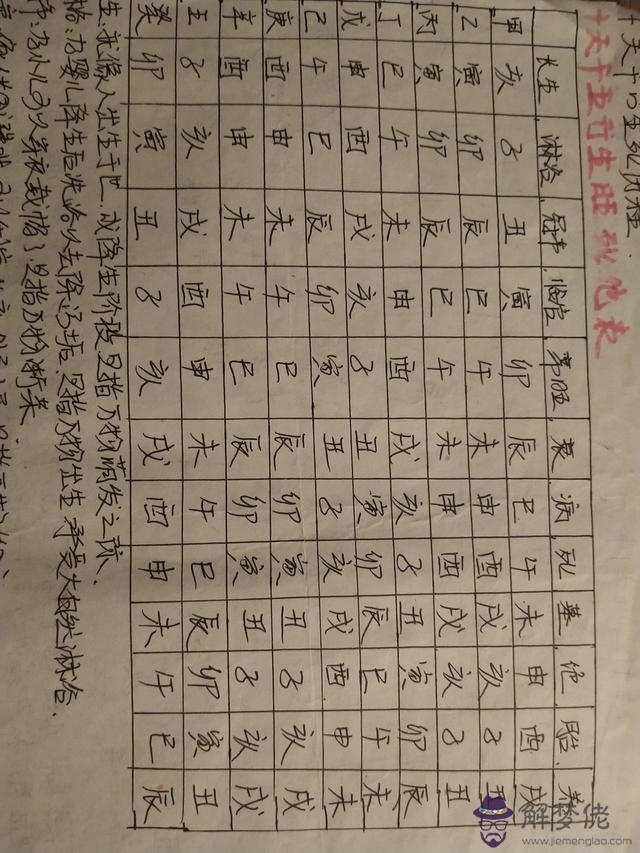 十天干五行生旺死绝表
长生 淋浴 冠带 临官 帝旺 衰 病 死 墓 绝 胎 养
甲 亥 子 丑 寅 卯 辰 巳 午 未 申 酉 戌
乙 寅 卯 辰 巳 午 未 申 酉 戌 亥 子 丑
丙 寅 卯 辰 巳 午 未 申 酉 戌 亥 子 丑
丁 巳 午 未 申 酉 戌 亥 子 丑 寅 卯 辰
戊 申 酉 戌 亥 子 丑 寅 卯 辰 巳 午 未
己 午 巳 辰 卯 寅 丑 子 亥 戌 酉 申 未
庚 酉 申 未 午 巳 辰 卯 寅 丑 子 亥 戌
辛 酉 申 未 午 巳 辰 卯 寅 丑 子 亥 戌
壬 子 亥 戌 酉 申 未 午 巳 辰 卯 寅 丑
癸 卯 寅 丑 子 亥 戌 酉 申 未 午 巳 辰
生：就像人出生于世，或降生阶段，是指万物萌发之际.
浴：为婴儿降生后洗浴以去除污垢，是指万物出生，承受大自然淋浴.
为小儿可以穿衣戴帽了，是指万物渐荣
解梦佬
www.jiemenglao.com